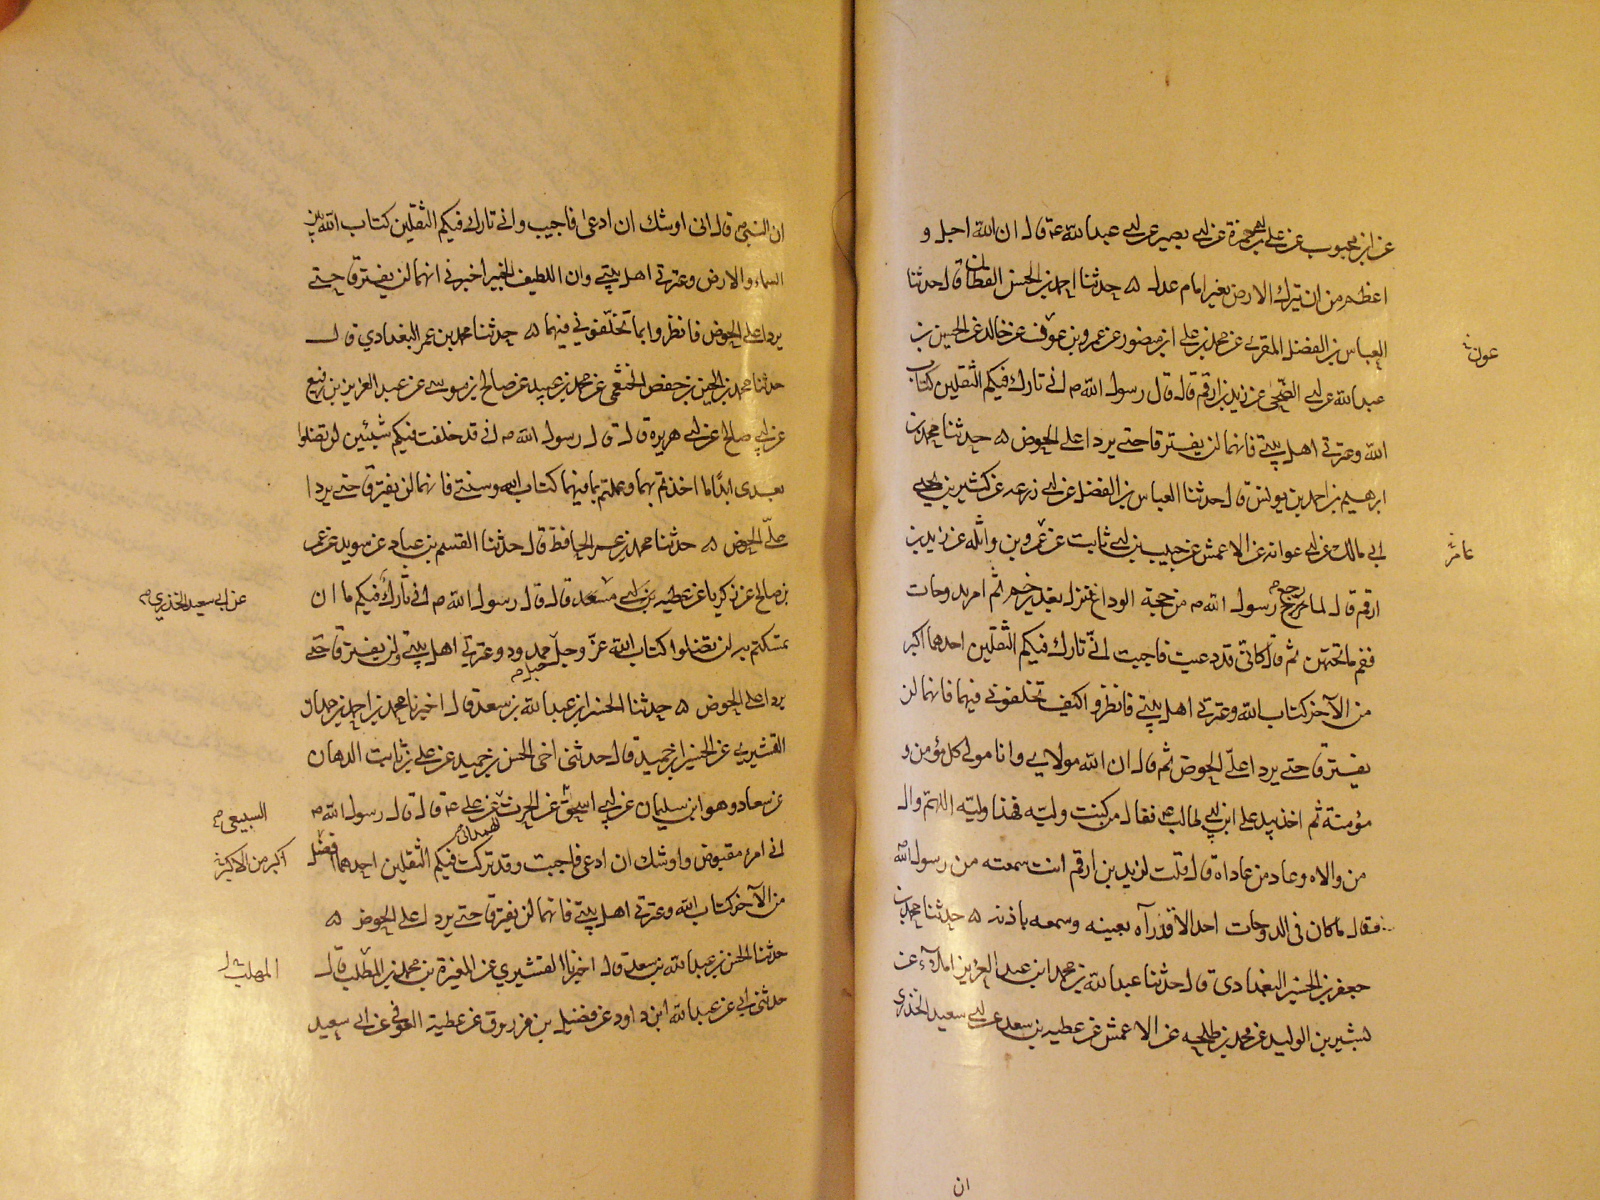 عن ابن محبوب عن علي بن ابي حمزة عن ابي بصير عن ابي عبدالله ع قال ان الله اجل و
اعظم من ان يترك الارض بغير امام عدل ۵ حدثنا احمد بن الحسن القطان قال حدثنا
العباس بن الفضل المقري عن محمد بن علي ابن منصور عن عمرو بن عوف عن خالد عن الحسن بن
عون
عبدالله عن ابي الضحى عن زيد بن ارقم قال قال رسول الله ص اني تارك فيكم الثقلين كتاب
الله وعترتي اهل بيتي فانهما لن يفترقا حتى يردا على الحوض ۵ حدثنا محمد بن
ابرهيم بن احمد بن يونس قال حدثنا العباس بن الفضل عن ابي زرعه عن كثير بن يحيى
ابي مالك عن ابي عوانه عن الاعمش عن حبيب بن ابي ثابت عن عمرو بن واثله عن زيد بن
عامر
ارقم قال لما رجع رسول الله ص من حجة الوداع نزل بغدير خم ثم امر بدوحات
فقم ما تحتهن ثم قال كاني قد دعيت فاجبت اني تارك فيكم الثقلين احدهما اكبر
من الآخر كتاب الله وعترتي اهل بيتي فانظروا كيف تخلفوني فيهما فانهما لن
يفترقا حتى يردا علي الحوض ثم قال ان الله مولاي وانا مولى كل مؤمن و
مؤمنة ثم اخذ بيد علي ابن ابي طالب ع فقال من كنت وليه فهذا وليه اللهم وال
من والاه وعاد من عاداه قال قلت لزيد بن ارقم انت سمعته من رسول الله ص
فقال ما كان في الدوحات احد الا قد رآه بعينه وسمعه باذنه ۵ حدثنا محمد بن
جعفر بن الحسين البغدادى قال حدثنا عبدالله بن محمد ابن عبد العزيز املاء عن
بشير بن الوليد عن محمد بن طلحه عن الاعمش عن عطيه بن سعد عن ابي سعيد الخدري
ان
ان النبي ص قال انى اوشك ان ادعى فاجيب واني تارك فيكم الثقلين كتاب الله بين
السماء والارض وعترتي اهل بيتي وان اللطيف الخبير اخبرني انهما لن يفترقا حتى
يردا على الحوض فانظروا بما تخلفوني فيهما ۵ حدثنا محمد بن عمر البغدادي قال
حدثنا محمد بن الحسين بن حفص الخثعمي عن محمد بن عبيد عن صالح بن موسى عن عبد العزيز بن رفيع
عن ابي صالح عن ابي هريرة قال قال رسول الله ص اني قد خلفت فيكم شيئين لن تضلوا
بعدى ابدًا ما اخذتم بهما وعملتم بما فيهما كتاب الله وسنتي فانهما لن يفترقا حتى يردا
علىّ الحوض ۵ حدثنا محمد بن عمر الحافظ قال حدثنا القسم بن عباد عن سويد عن عمر
بن صالح عن زكريا عن عطيه عن ابي سعيد قال قال رسول الله ص اني تارك فيكم ما ان
عن ابي سعيد الخدري ص
تمسكتم به لن تضلوا كتاب الله عزّ وجلّ حبل ممدود وعترتي اهل بيتي ولن يفترقا حتى
يردا على الحوض ۵ حدثنا الحسن ابن عبدالله بن سعد قال اخبرنا محمد بن احمد بن حمدان
القشيري عن الحسين ابن حميد قال حدثني اخي الحسن بن حميد عن علي بن ثابت الدهان
عن سعاد وهو ابن سليمان عن ابي اسحق عن الحرث عن علي ع قال قال رسول الله ص
السبيعي ص
همداني ص
اني امرء مقبوض واوشك ان ادعى فاجبت وقد تركت فيكم الثقلين احدهما افضل
اكبر من الاكبر
من الآخر كتاب الله وعترتي اهل بيتي فانهما لن يفترقا حتى يردا على الحوض ۵
حدثنا الحسن بن عبدالله بن سعد قال اخبرنا القشيري عن المغيرة بن محمد بن المطلب قال
المهلب
حدثني ابي عن عبدالله ابن داود عن فضيل بن مرزوق عن عطية العوفي عن ابي سعيد